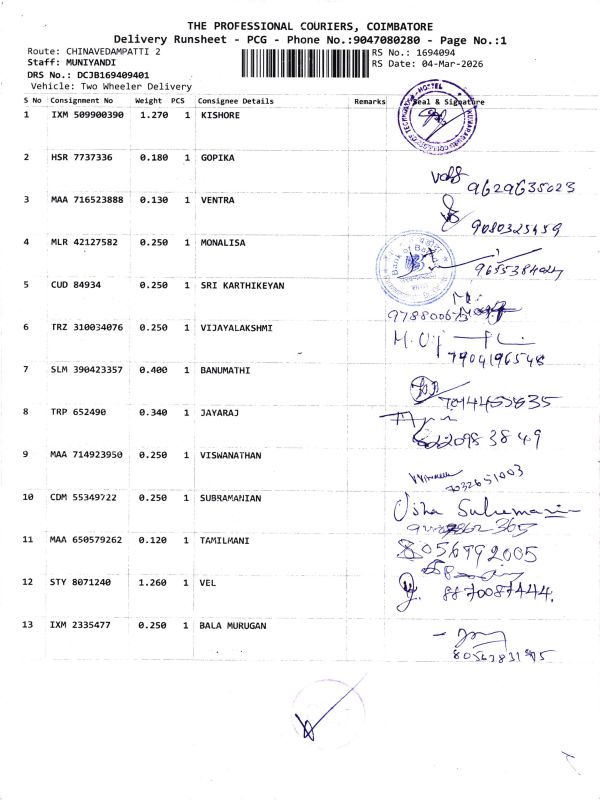 THE PROFESSIONAL COURIERS, COIMBATORE
Delivery Runsheet - PCG - Phone No.:9047080280 - Page No.:1
Route: CHINAVEDAMPATTI 2
RS No.: 1694094
Staff: MUNIYANDI
RS Date: 04-Mar-2026
DRS No.: DCJB169409401
Vehicle: Two Wheeler Delivery
S No Consignment No Weight PCS Consignee Details Remarks Seal & Signature
1 IXM 509900390 1.270 1 KISHORE
2 HSR 7737336 0.180 1 GOPIKA
9629635023
3 MAA 716523888 0.130 1 VENTRA
9080325459
4 MLR 42127582 0.250 1 MONALISA
Bank of
5 CUD 84934 0.250 1 SRI KARTHIKEYAN
6 TRZ 310034076 0.250 1 VIJAYALAKSHMI
7904196548
7 SLM 390423357 0.400 1 BANUMATHI
8 TRP 652490 0.340 1 JAYARAJ
9 MAA 714923950 0.250 1 VISWANATHAN
7032651003
10 CDM 55349722 0.250 1 SUBRAMANIAN
Usha
11 MAA 650579262 0.120 1 TAMILMANI
8056992005
12 STY 8071240 1.260 1 VEL
8870087444.
13 IXM 2335477 0.250 1 BALA MURUGAN